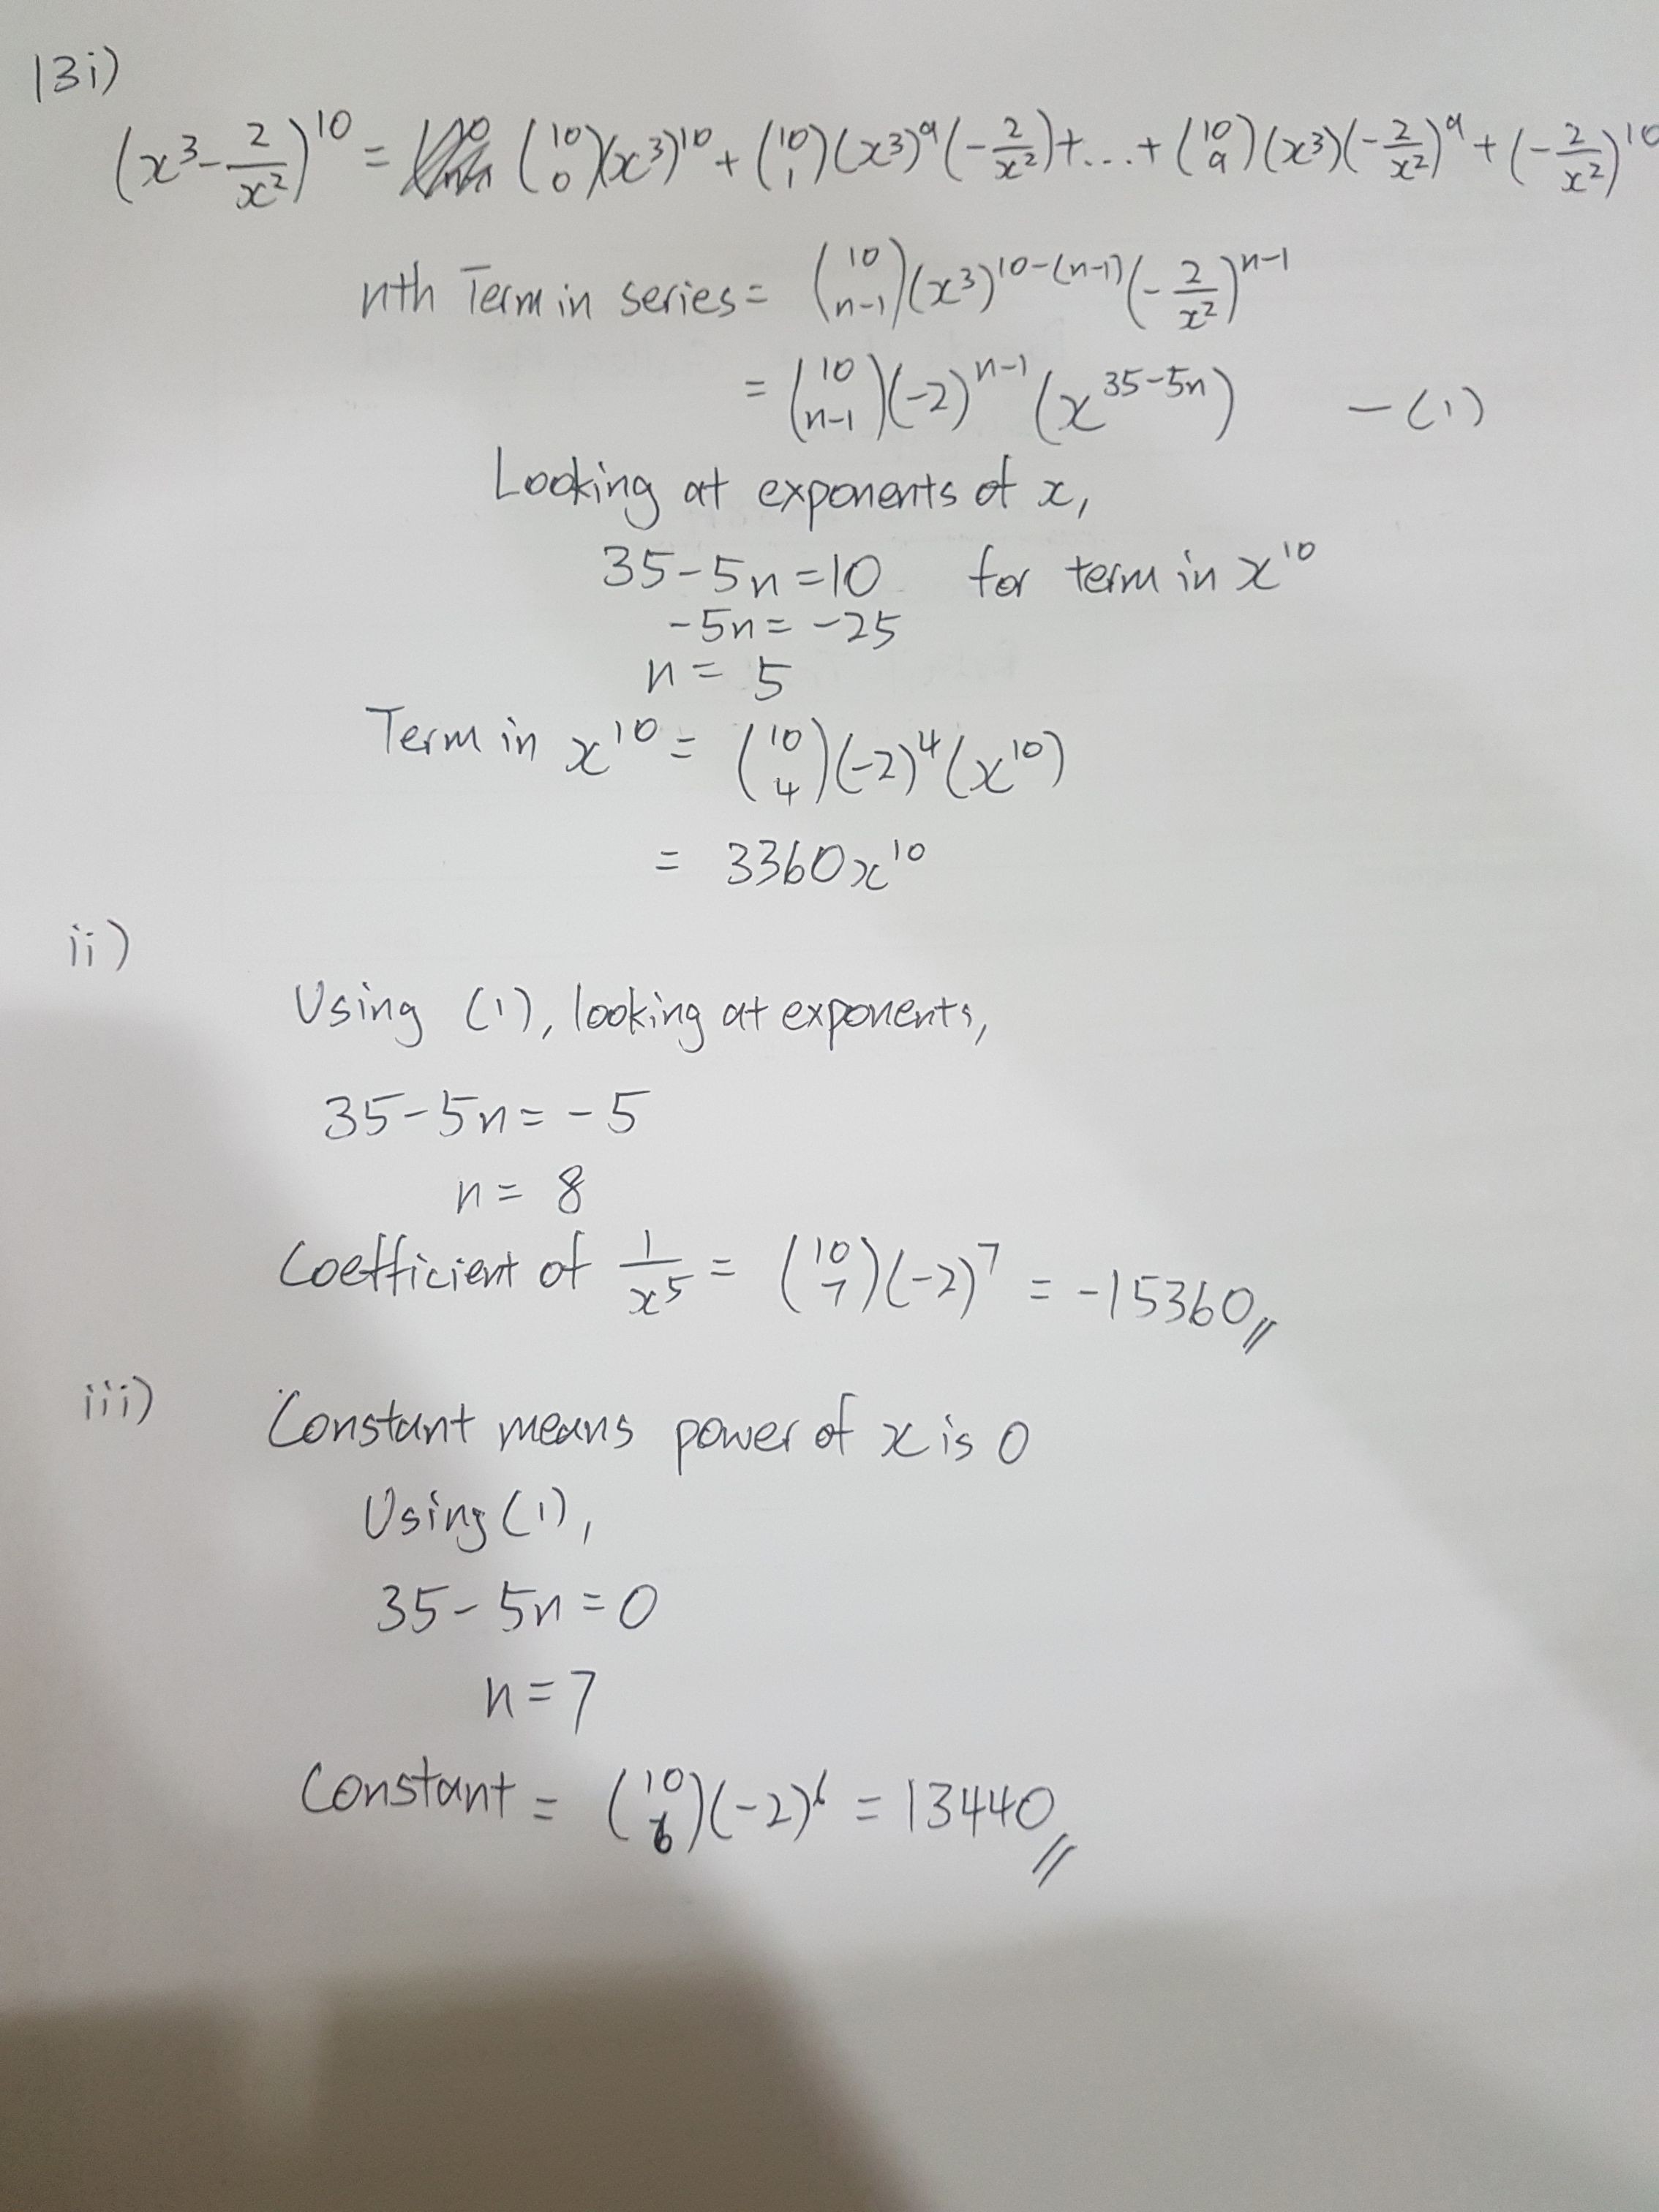 13i)
(x³ - 2/x²)¹⁰ = (10 0)(x³)¹⁰ + (10 1)(x³)⁹(-2/x²) + ... + (10 9)(x³)(-2/x²)⁹ + (-2/x²)¹⁰
nth Term in series = (10 n-1)(x³)^(10-(n-1))(-2/x²)^(n-1)
= (10 n-1)(-2)^(n-1)(x^(35-5n)) -(1)
Looking at exponents of x,
35-5n=10 for term in x¹⁰
-5n= -25
n = 5
Term in x¹⁰ = (10 4)(-2)⁴(x¹⁰)
= 3360x¹⁰
ii)
Using (1), looking at exponents,
35-5n= -5
n= 8
Coefficient of 1/x⁵ = (10 7)(-2)⁷ = -15360//
iii) Constant means power of x is 0
Using (1),
35-5n=0
n=7
Constant = (10 6)(-2)⁶ = 13440//